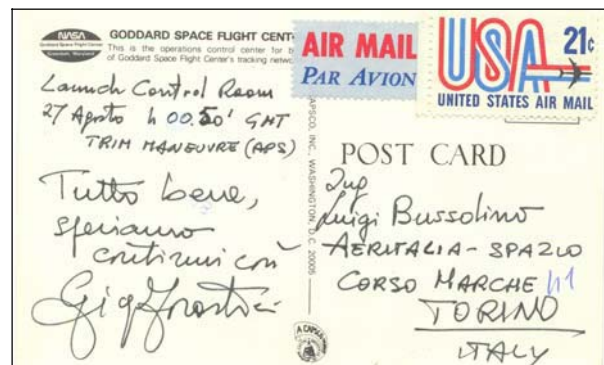 NASA
Goddard Space Flight Center
Greenbelt, Maryland
GODDARD SPACE FLIGHT CENT
This is the operations control center for b
of Goddard Space Flight Center's tracking netwo
AIR MAIL
PAR AVION
USA 21c
UNITED STATES AIR MAIL
Launch Control Room
27 Agosto h 00.50' GMT
TRIM MANEUVRE (APS)
Tutto bene,
speriamo
continui così
APSCO, INC., WASHINGTON, D.C. 20005
POST CARD
Ing
Luigi Bussolino
AERITALIA - SPAZIO
CORSO MARCHE 41
TORINO
ITALY